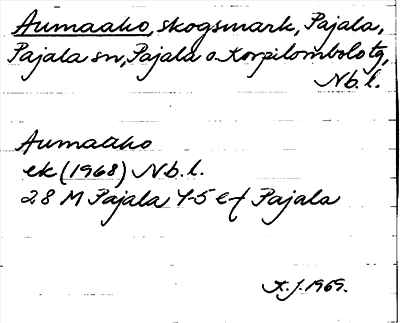 Aumaako, skogsmark, Pajala,
Pajala sn, Pajala o. Korpilombolo tg,
Nb. l.
Aumaako
ek (1968) Nb. l.
28 M Pajala 4-5 e-f Pajala
K. J. 1969.